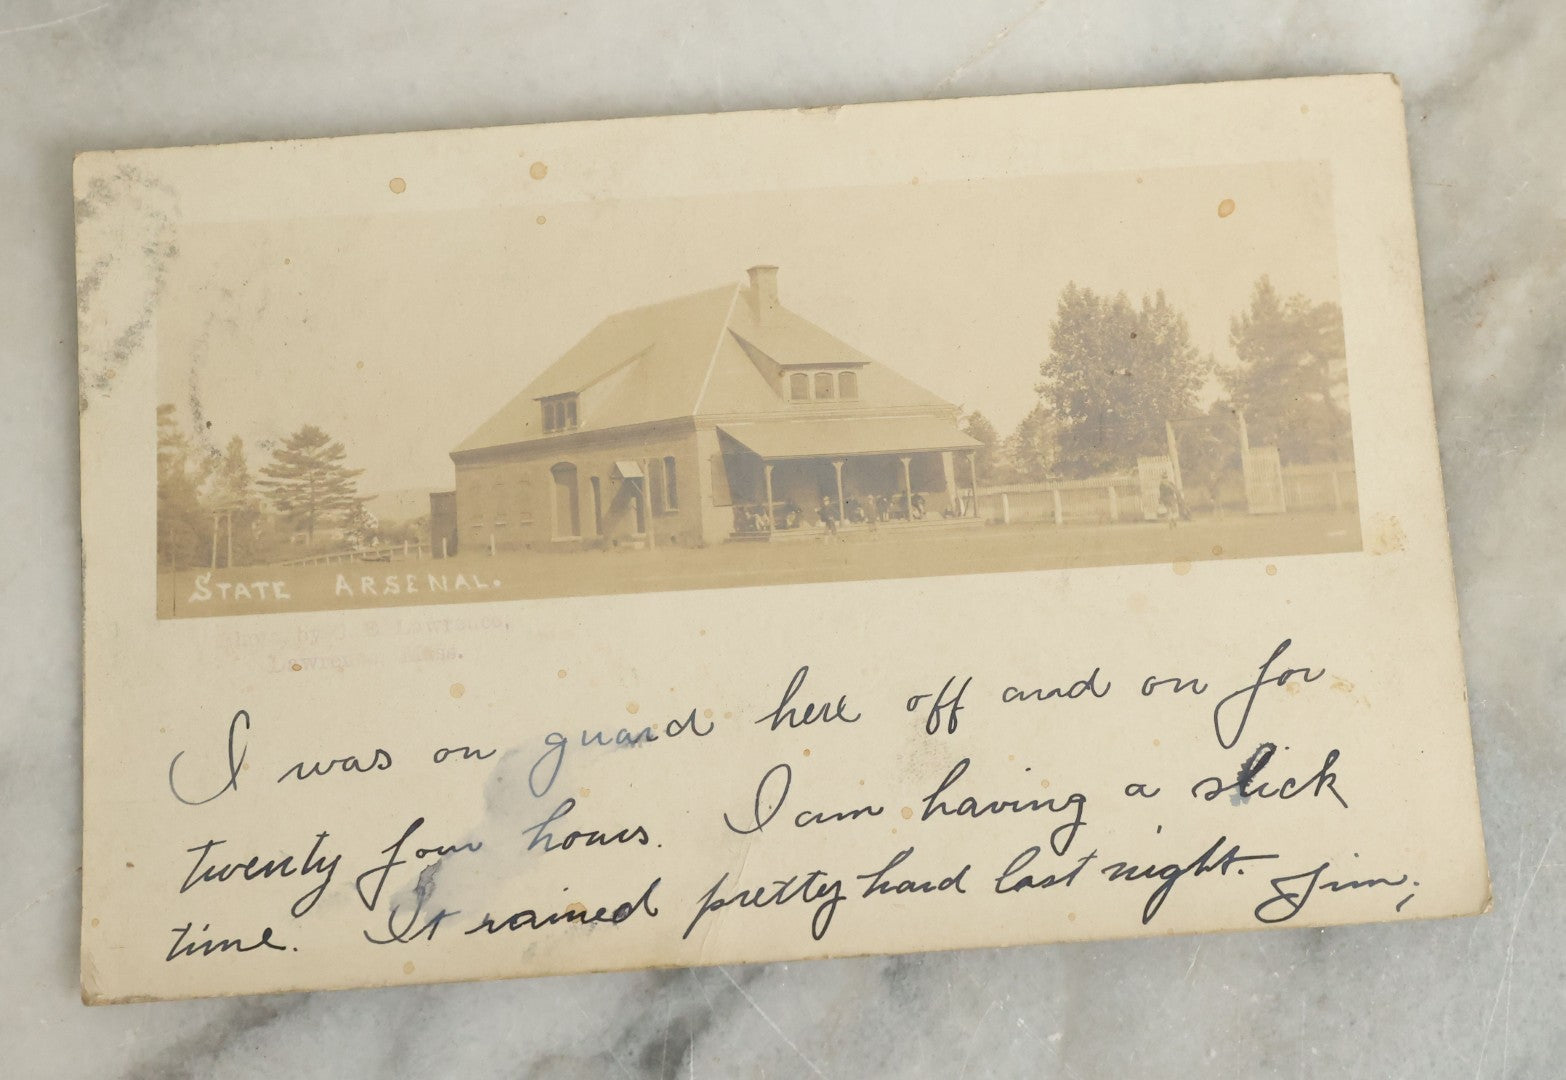 STATE ARSENAL.
Photo by J E Lawrence,
Lawrence, Mass.
I was on guard here off and on for
twenty four hours. I am having a slick
time. It rained pretty hard last night. Jim,